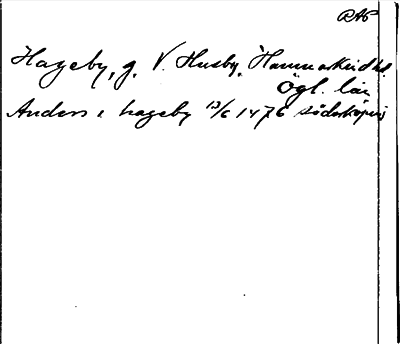 RAP
Hageby, g. V. Husby, Hammarkinds hd.
Ögl. län
Anders i hageby 13/6 1476 Söderköping